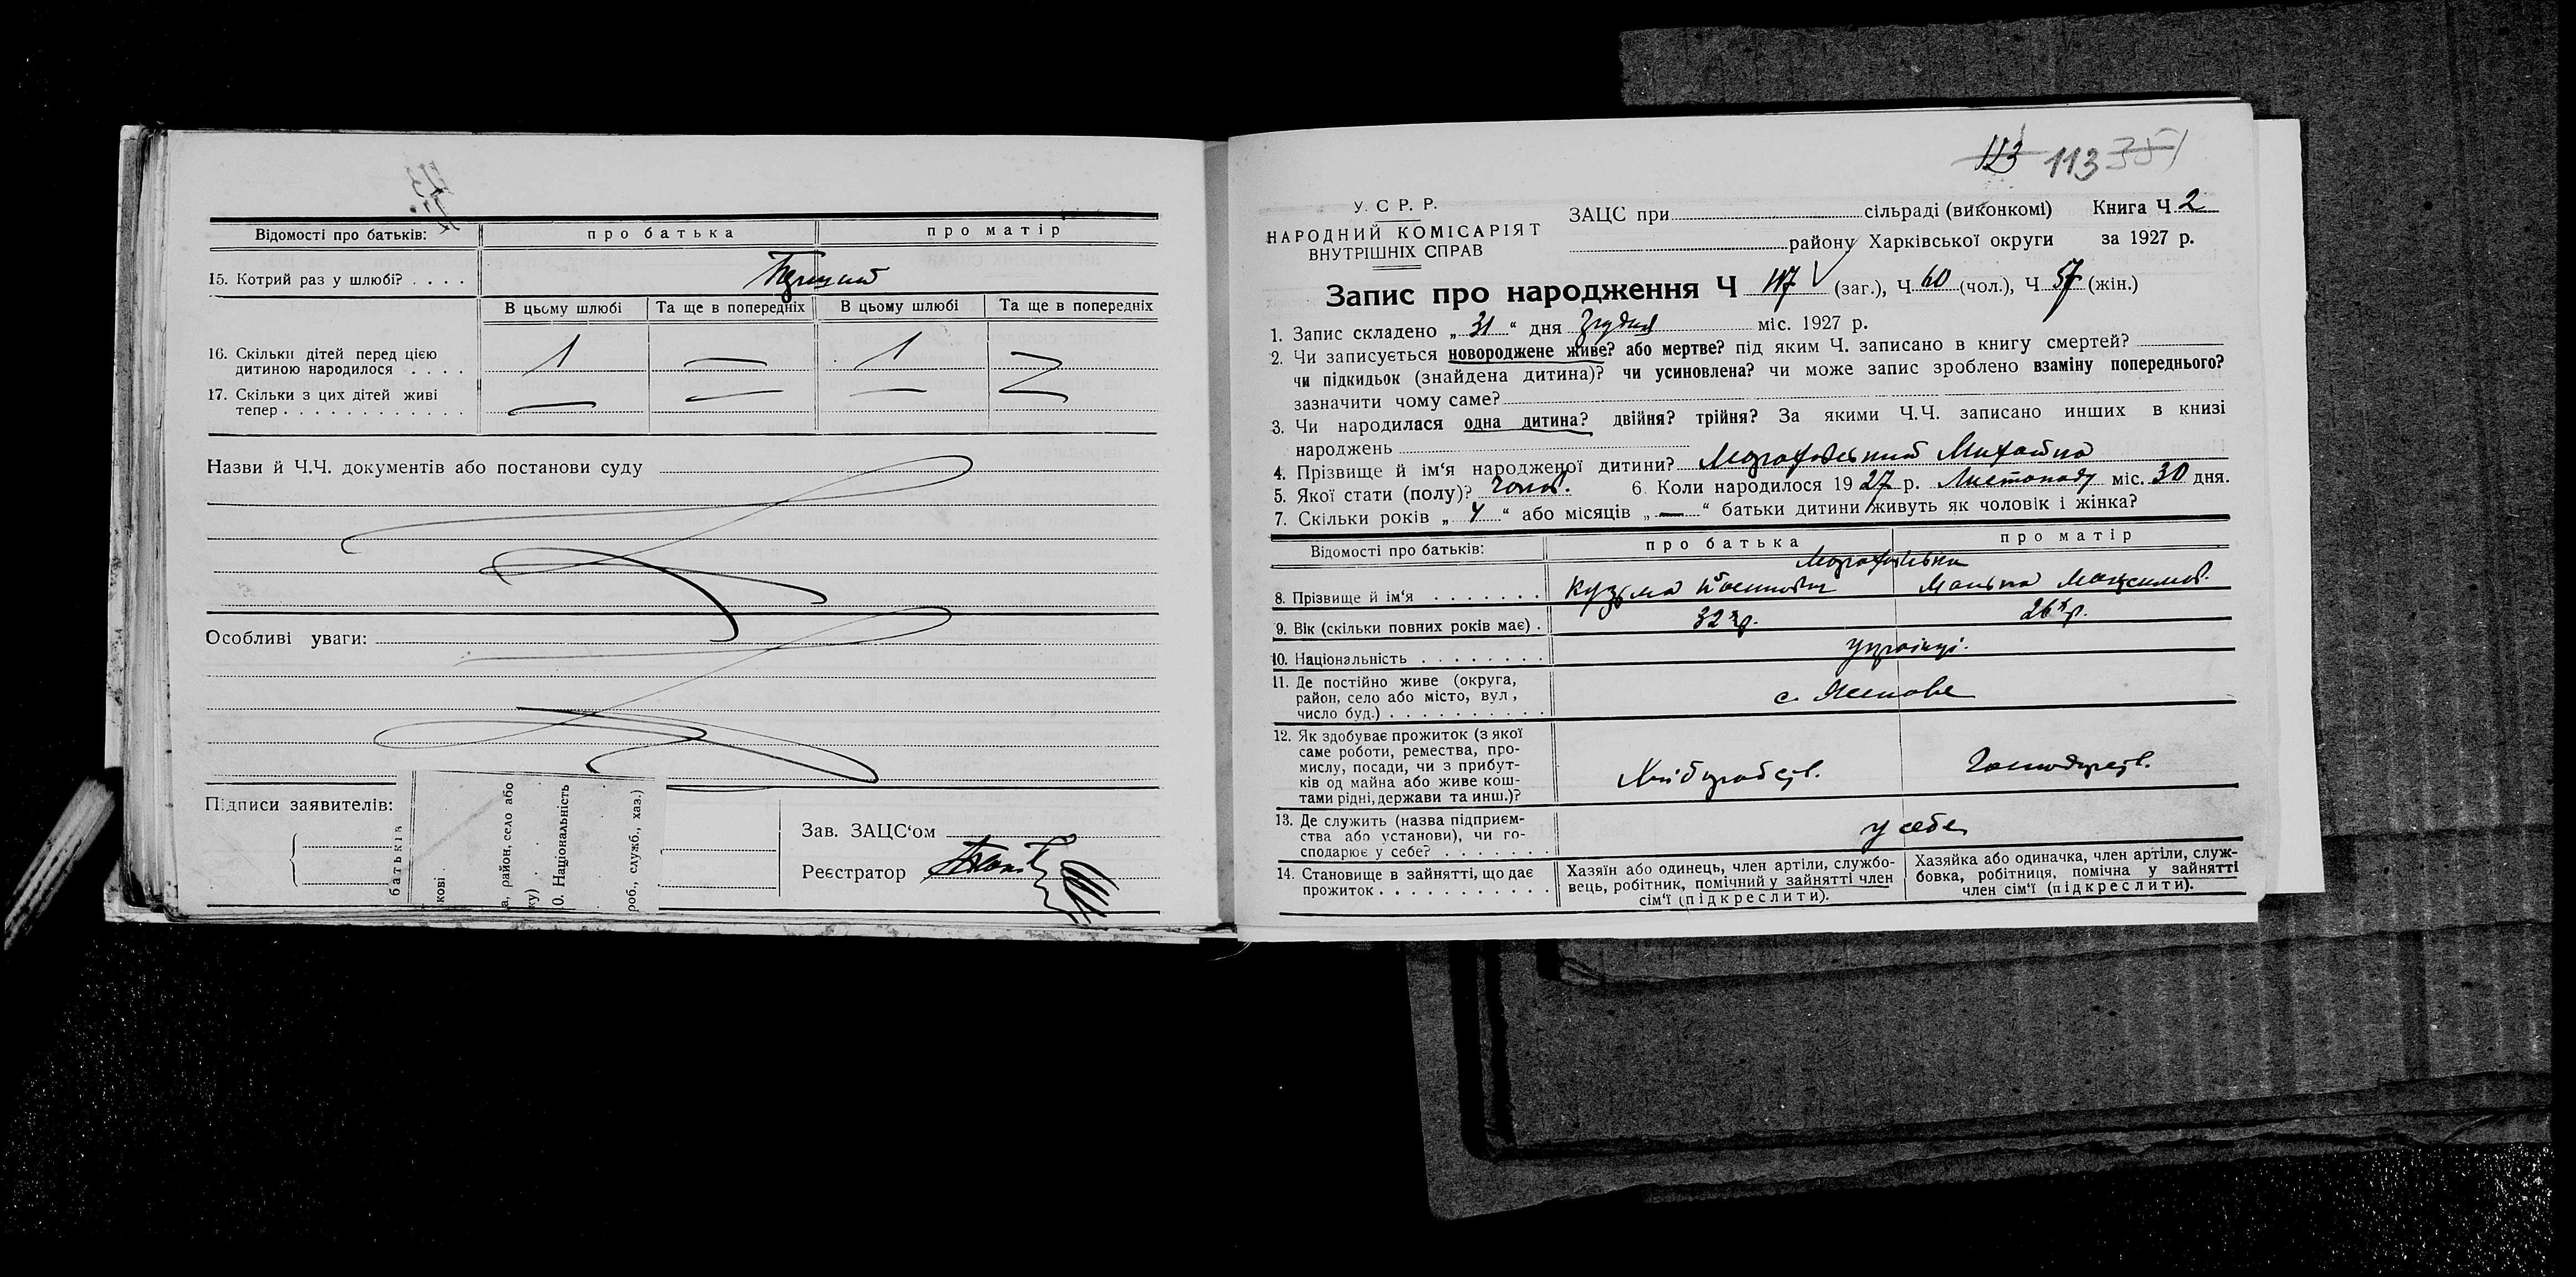 Відомості про батьків: про батька про матір
15. Котрий раз у шлюбі? . . . . Перший
В цьому шлюбі Та ще в попередніх В цьому шлюбі Та ще в попередніх
16. Скільки дітей перед цією
дитиною народилося . . . . 1 — 1 —
17. Скільки з цих дітей живі
тепер . . . . . . . . . . . . — — — —
Назви й Ч.Ч. документів або постанови суду
Особливі уваги:
Підписи заявителів:
батьків
кові
а, район, село або
ку)
0. Національність
роб., служб., хаз.)
Зав. ЗАЦС‘ом
Реєстратор
113 113 351
У. С Р. Р.
НАРОДНИЙ КОМІСАРІЯТ
ВНУТРІШНІХ СПРАВ
ЗАЦС при сільраді (виконкомі) Книга Ч 2
району Харківської округи за 1927 р.
Запис про народження Ч 117 (заг.), Ч 60 (чол.), Ч 57 (жін.)
1. Запис складено „ 31 “ дня Грудня міс. 1927 р.
2. Чи записується новороджене живе? або мертве? під яким Ч. записано в книгу смертей?
чи підкидьок (знайдена дитина)? чи усиновлена? чи може запис зроблено взаміну попереднього?
зазначити чому саме?
3. Чи народилася одна дитина? двійня? трійня? За якими Ч.Ч. записано инших в книзі
народжень
4. Прізвище й ім‘я народженої дитини? Михайло
5. Якої стати (полу)? чолов. 6. Коли народилося 19 27 р. Листопаду міс. 30 дня.
7. Скільки років „ 4 “ або місяців „ — “ батьки дитини живуть як чоловік і жінка?
Відомості про батьків: про батька про матір
8. Прізвище й ім‘я . . . . . . . Кузьма Максимов.
9. Вік (скільки повних років має) . 32 р. 26 р.
10. Національність . . . . . . . . українці.
11. Де постійно живе (округа,
район, село або місто, вул,
число буд.) . . . . . . . . . . с.
12. Як здобуває прожиток (з якої
саме роботи, ремества, про-
мислу, посади, чи з прибут-
ків од майна або живе кош-
тами рідні, держави та инш.)? Хліборобств. Господарств.
13. Де служить (назва підприєм-
ства або установи), чи го-
сподарює у себе? . . . . . . . у себе
14. Становище в зайнятті, що дає
прожиток . . . . . . . . . . .
Хазяїн або одинець, член артіли, службо-
вець, робітник, помічний у зайнятті член
сім‘ї (підкреслити).
Хазяйка або одиначка, член артіли, служ-
бовка, робітниця, помічна у зайнятті
член сім‘ї (підкреслити).